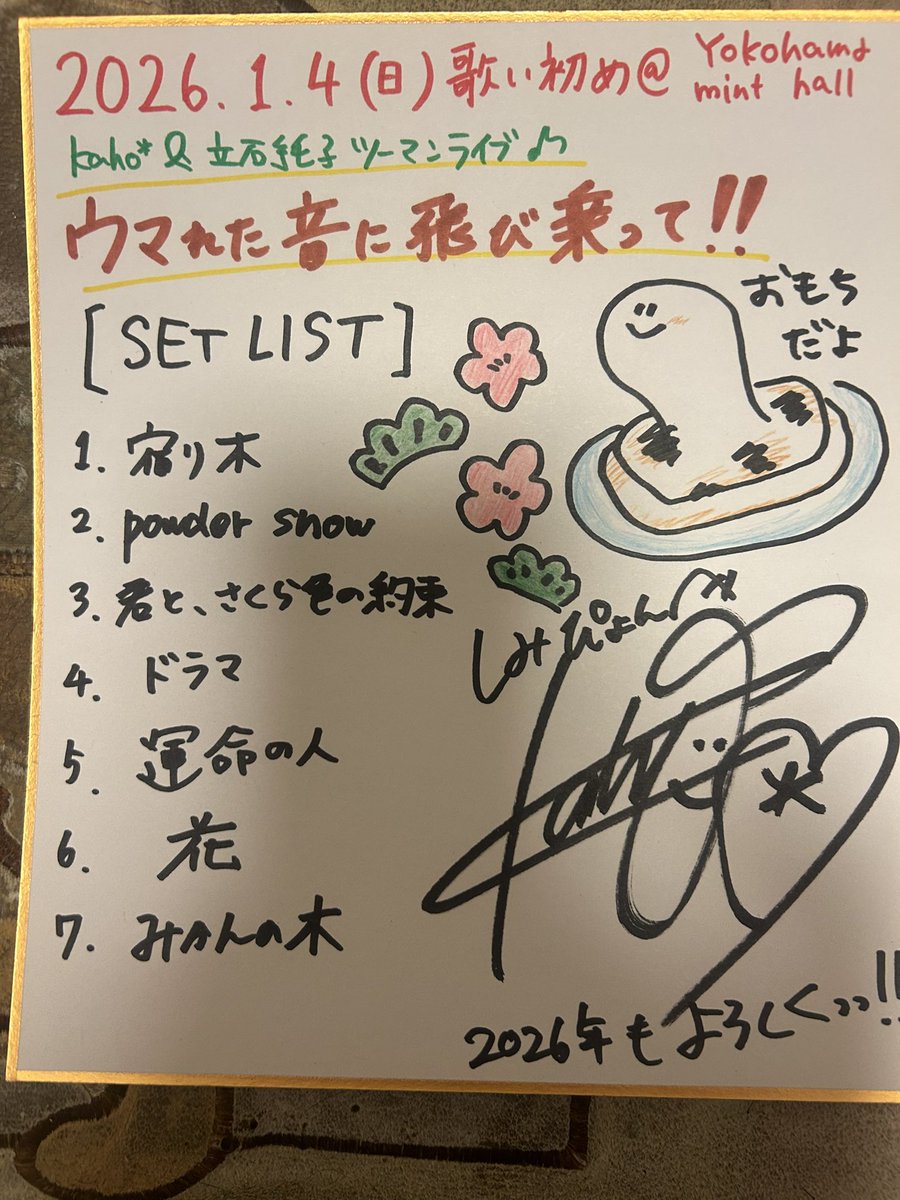 2026.1.4(日)歌い初め@ Yokohama
mint hall
kaho*& 立石純子 ツーマンライブ♪
ウマれた音に飛び乗って!!
[SET LIST]
おもち
だよ
1. 宿り木
2. powder snow
3. 君と、さくら色の約束
4. ドラマ
5. 運命の人
6. 花
7. みかんの木
しみぴょんへ
kaho*
2026年もよろしくっっ!!